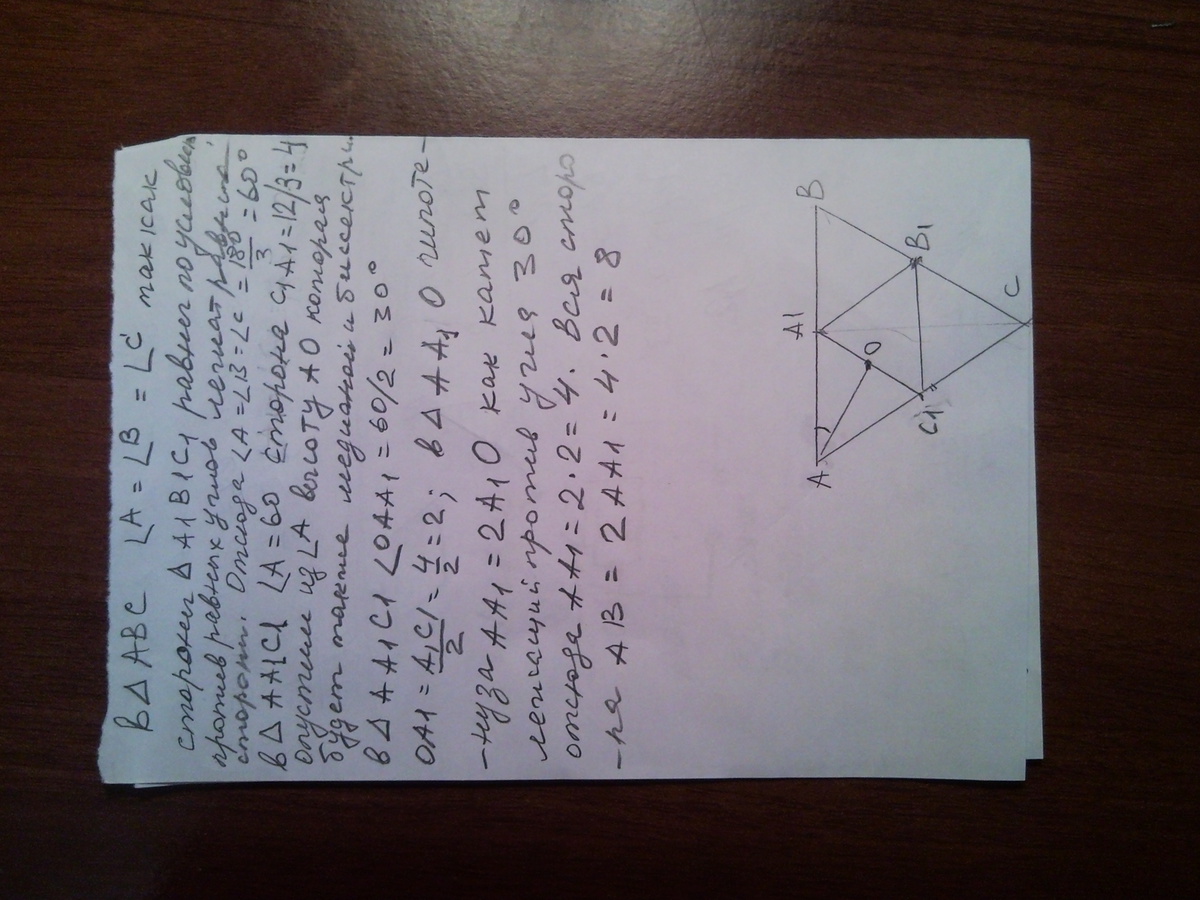 В Δ ABC ∠A = ∠B = ∠C так как
сторонет Δ A1B1C1 равнет по условию
против равных углов лежат равные
сторонт. Отсюда ∠A = ∠B = ∠C = 180/3 = 60°
в Δ AA1C1 ∠A = 60 сторона C1A1 = 12/3 = 4
опустим из ∠A высоту AO которая
будет также медианой и биссектри
в Δ AA1C1 ∠OAA1 = 60/2 = 30°
OA1 = A1C1/2 = 4/2 = 2; в Δ AA1O гипоте-
-нуза AA1 = 2A1O как катет
лежащий против угла 30°
отсюда AA1 = 2·2 = 4. Вся сторо
-на AB = 2AA1 = 4·2 = 8
A
A1
B
O
C1
B1
C